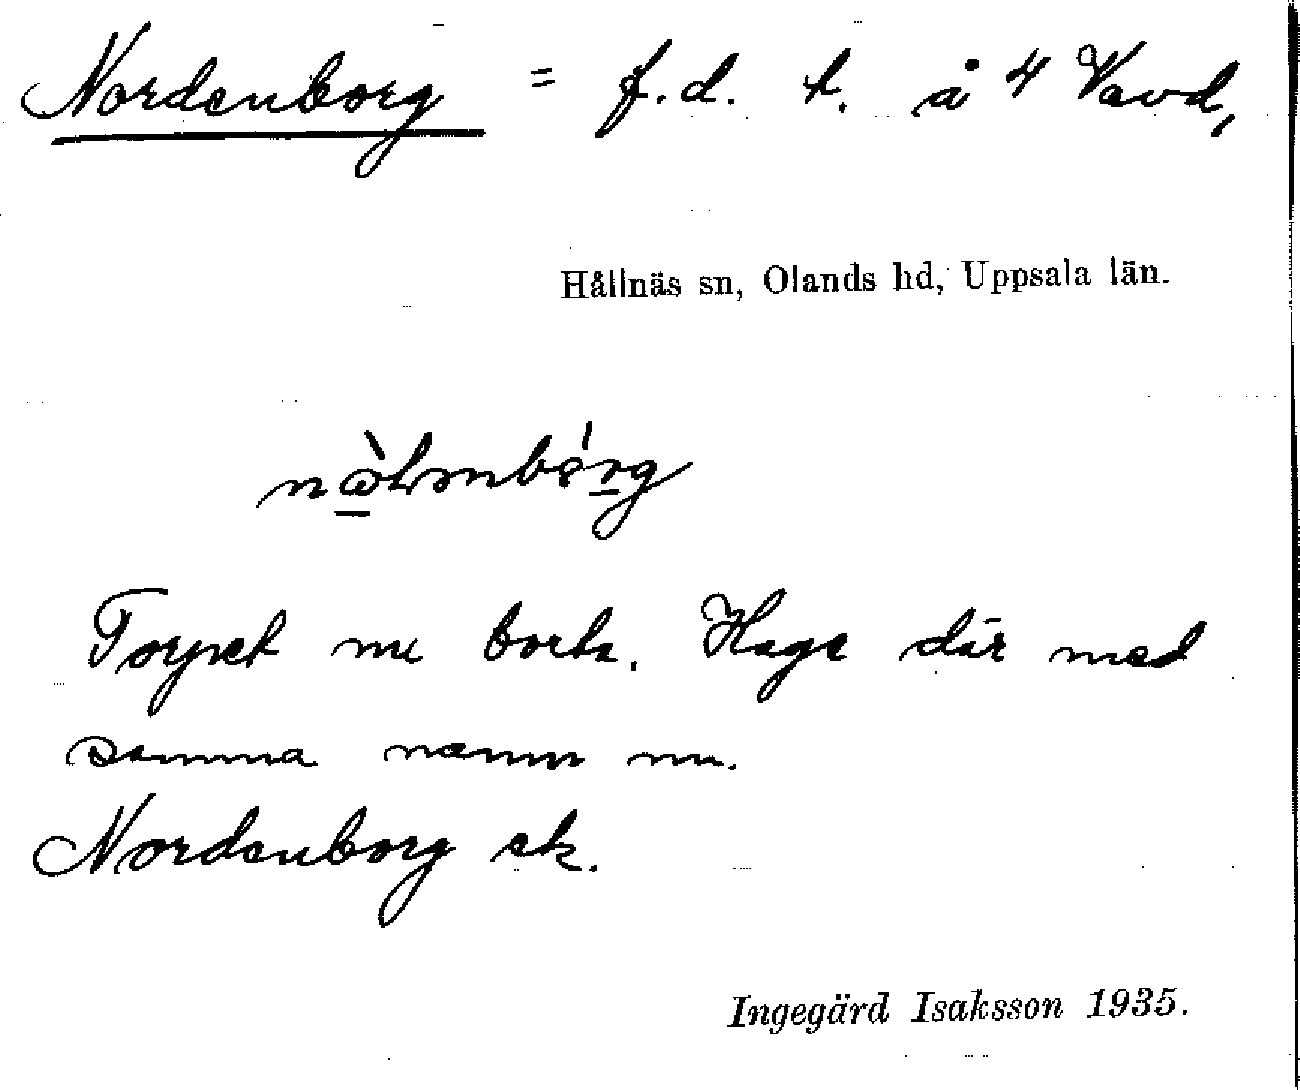 Nordenborg = f.d. t. å 4 Vavd,
Hållnäs sn, Olands hd, Uppsala län.
Torpet nu borta. Hage där med
samma namn nu.
Nordenborg ek.
Ingegärd Isaksson 1935.